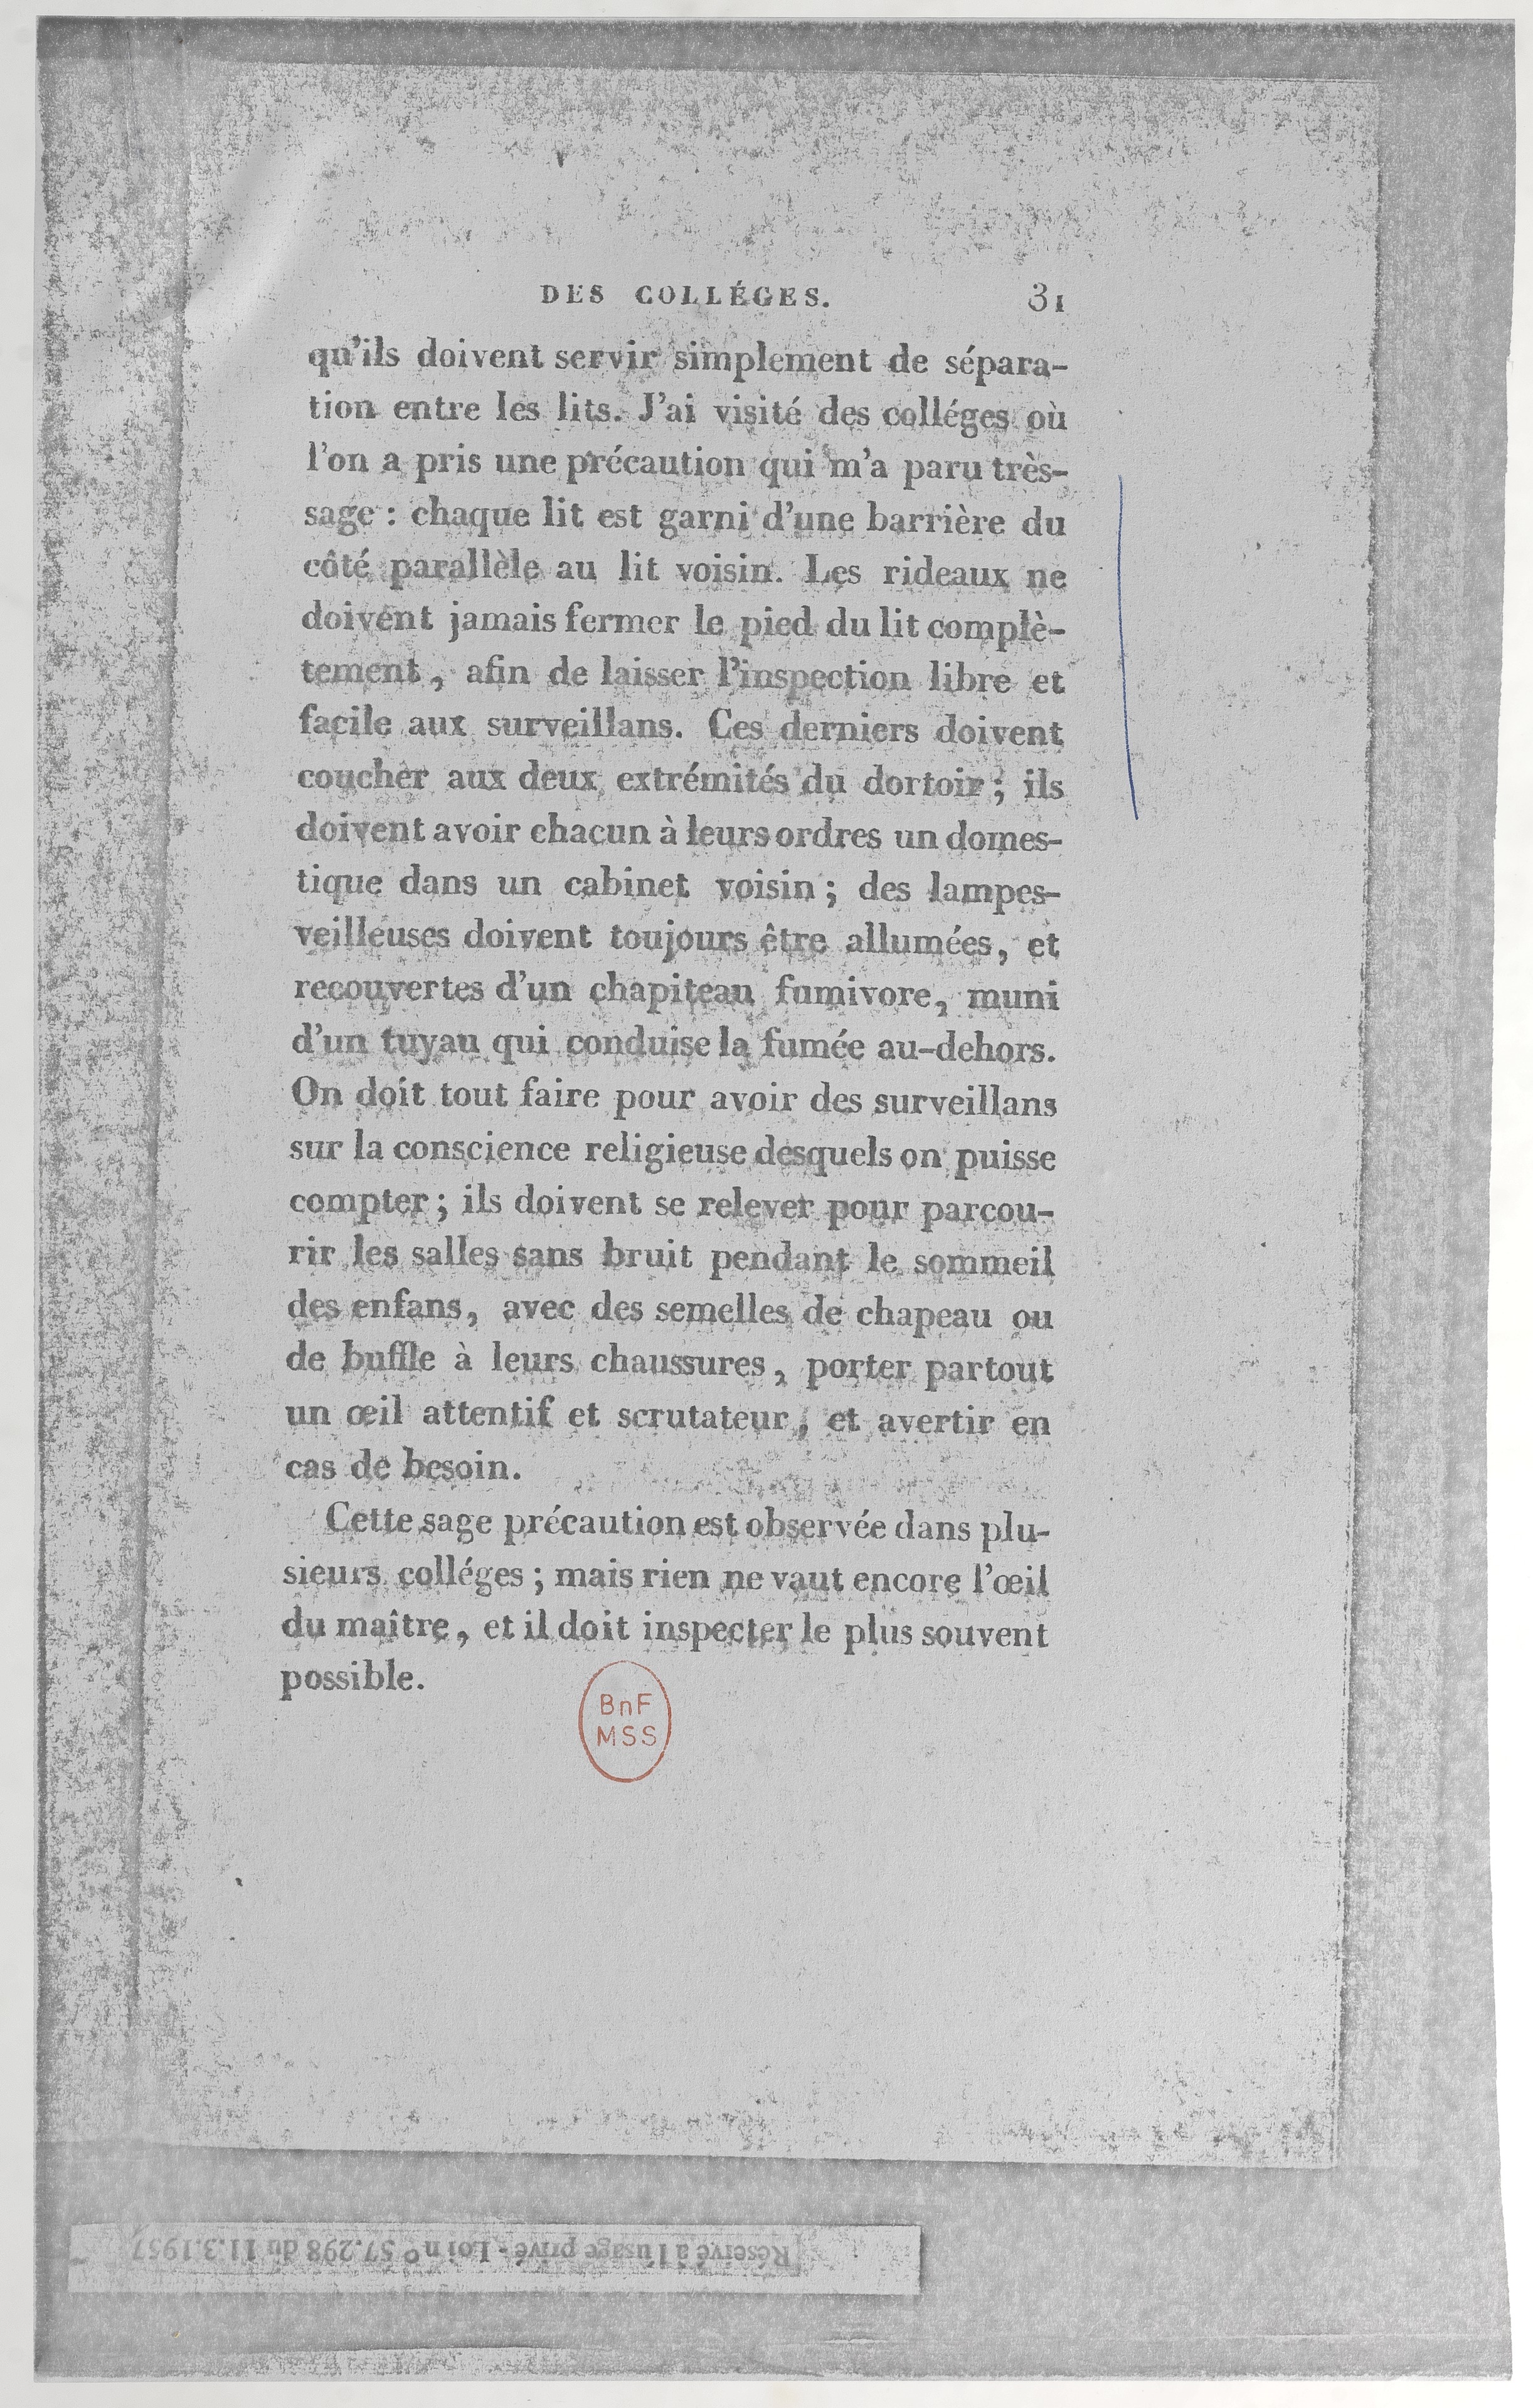 DES COLLÉGES. 31
qu'ils doivent servir simplement de sépara-
tion entre les lits. J'ai visité des colléges où
l'on a pris une précaution qui m'a paru très-
sage : chaque lit est garni d'une barrière du
côté parallèle au lit voisin. Les rideaux ne
doivent jamais fermer le pied du lit complè-
tement, afin de laisser l'inspection libre et
facile aux surveillans. Ces derniers doivent
coucher aux deux extrémités du dortoir ; ils
doivent avoir chacun à leurs ordres un domes-
tique dans un cabinet voisin ; des lampes-
veilleuses doivent toujours être allumées, et
recouvertes d'un chapiteau fumivore, muni
d'un tuyau qui conduise la fumée au-dehors.
On doit tout faire pour avoir des surveillans
sur la conscience religieuse desquels on puisse
compter ; ils doivent se relever pour parcou-
rir les salles sans bruit pendant le sommeil
des enfans, avec des semelles de chapeau ou
de buffle à leurs chaussures, porter partout
un œil attentif et scrutateur, et avertir en
cas de besoin.
Cette sage précaution est observée dans plu-
sieurs colléges ; mais rien ne vaut encore l'œil
du maître, et il doit inspecter le plus souvent
possible.
BnF
MSS
Réservé à l'usage privé - Loi nº 57.298 du 11.3.1957